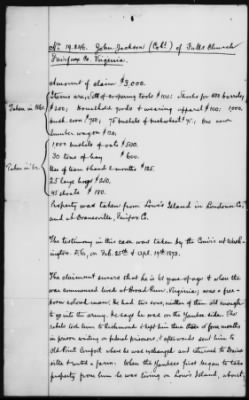 No. 19.246. John Jackson (Col.) of Falls Church
Fairfax Co. Virginia.
Amount of claim $3.000.
Taken in 1861.
Items are, Sett of coopering tools $100; Stock for 600 barrels,
$200; Household goods & wearing apparel $100; 1000
bush. corn $750; 75 bushels of buckwheat 75; One new
lumber wagon $120;
1,000 bushels of oats $500.
30 tons of hay $600.
Taken in 62.
Use of team & hand 2 months $125.
25 large hogs $250.
45 shoats $180.
Property was taken from Lowe's Island in Loudoun Co.
and at Dranesville, Fairfax Co.
The testimony in this case was taken by the Com'rs at Wash-
ington D.C., on Feb. 25th & Apl. 19th 1873.
The claimant swears that he is 60 years of age & when the
war commenced lived at Broad Run, Virginia; was a free-
born colored man. He had two sons, neither of them old enough
to go into the army. He says he was on the Yankee side. The
rebels took him to Richmond & kept him then three or four months
in prison waiting on federal prisoners, & afterwards sent him to
Old Point Comfort where he was exchanged and returned to Dranes-
ville & rented a farm. When the Yankees first began to take
property from him he was living on Lowe's Island, about